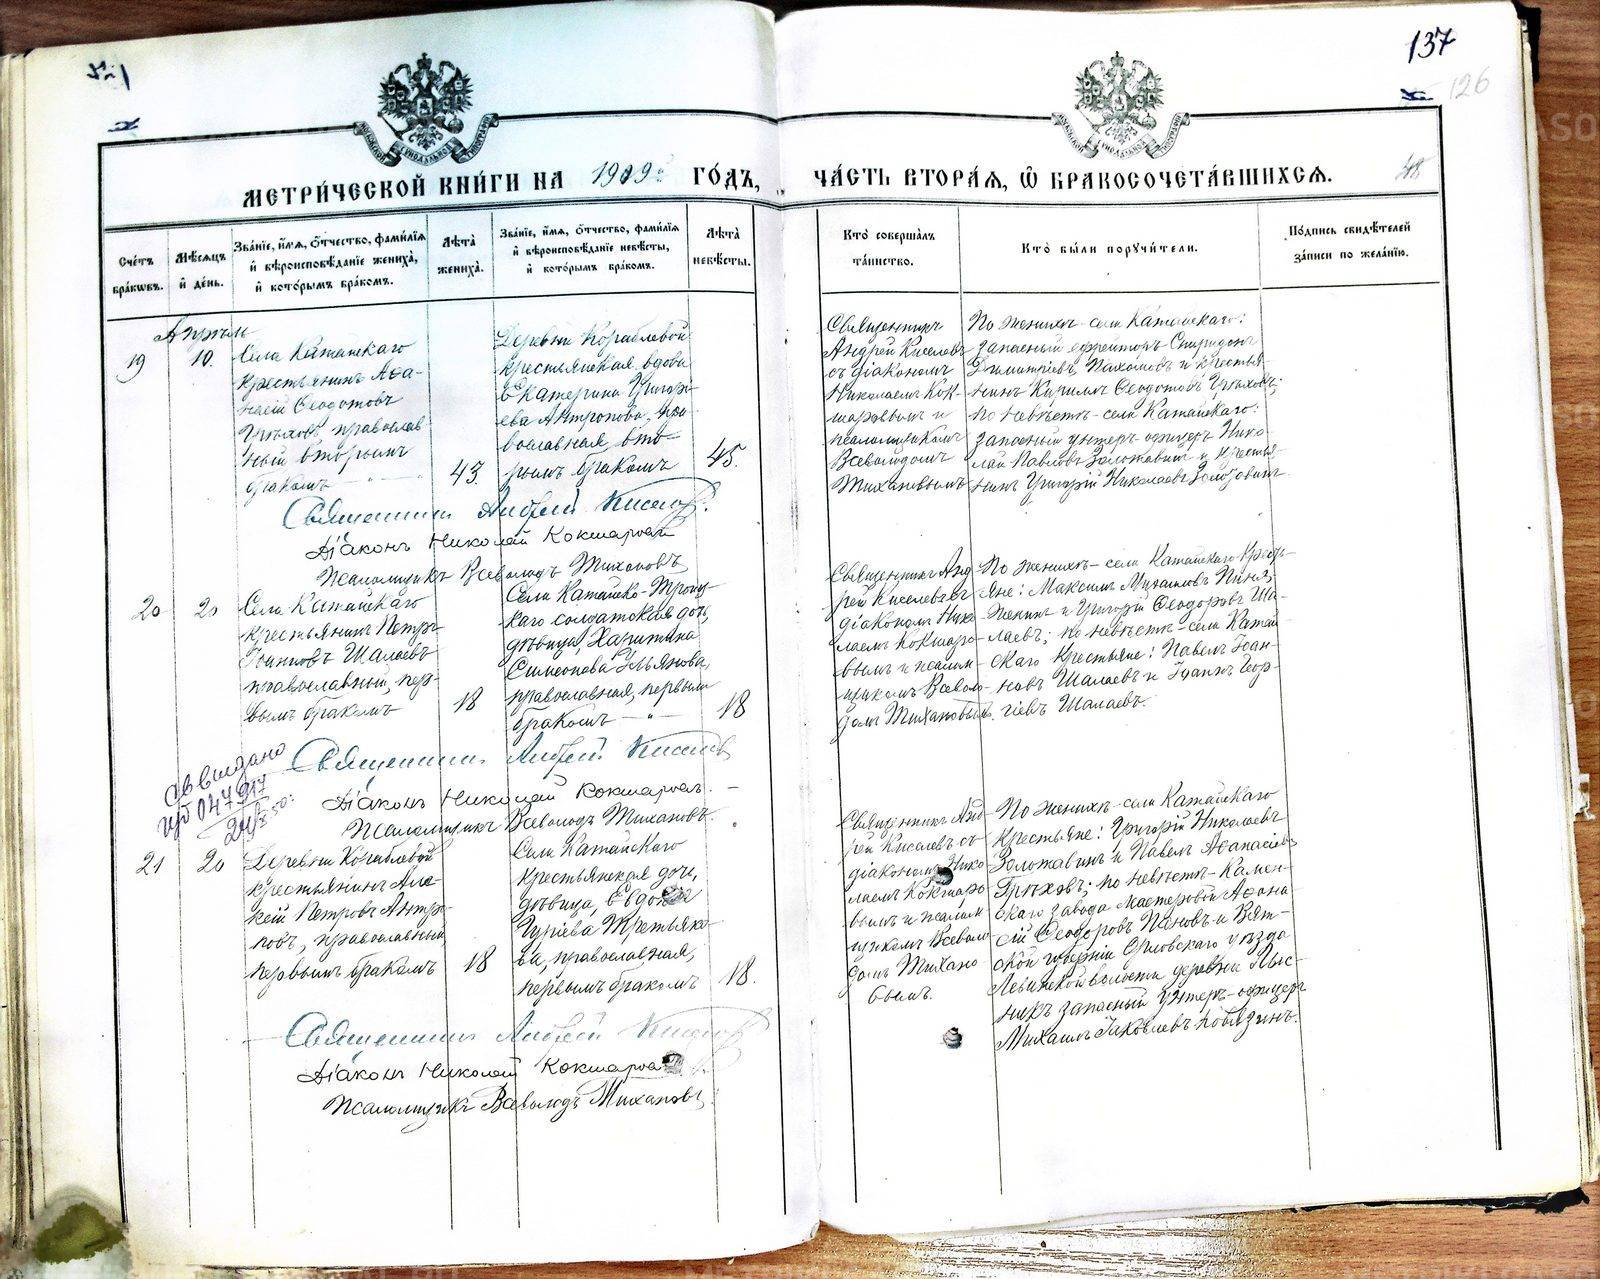 137
126
48
МЕТРИ́ЧЕСКОЙ КНИ́ГИ НА 1909 ГО́ДЪ,
ЧА́СТЬ ВТОРА́Я, Ѡ БРАКОСОЧЕТА́ВШИХСЯ.
Сче́тъ бра́кѡвъ.
Мѣ́сяцъ и҆ де́нь.
Зва́нїе, и҆́мя, ѻ҆́тчество, фами́лїя и҆ вѣроисповѣ́данїе жениха̀, и҆ кото́рымъ бра́комъ.
Лѣ́та жениха̀.
Зва́нїе, и҆́мя, ѻ҆́тчество, фами́лїя и҆ вѣроисповѣ́данїе невѣ́сты, и҆ кото́рымъ бра́комъ.
Лѣ́та невѣ́сты.
Кто̀ соверша́лъ та́инство.
Кто̀ бы́ли порꙋчи́тели.
По́дпись свидѣ́телей за́писи по жела́нїю.
Апрѣль
19
10.
Села Катайскаго
крестьянинъ Аѳа-
насій Ѳеодотовъ
Грѣховъ, православ
ный вторымъ
бракомъ
43.
Деревни Кораблевой
крестьянская вдова
Екатерина Григорі-
ева Антропова, пра-
вославная вто-
рымъ бракомъ
45.
Священникъ
Андрей Киселевъ
съ діакономъ
Николаемъ Кок-
шаровымъ и
псаломщикомъ
Всеволодомъ
Тихановымъ
По женихѣ - села Катайскаго:
запасный ефрейторъ Спиридонъ
Димитріевъ Пахомовъ и крестья-
нинъ Кириллъ Ѳеодотовъ Грѣховъ;
по невѣстѣ - села Катайскаго:
запасный унтеръ-офицеръ Нико-
лай Павловъ Золотавинъ и крестья-
нинъ Григорій Николаевъ Золотавинъ
Священникъ Андрей Киселевъ.
Діаконъ Николай Кокшаровъ
Псаломщикъ Всеволодъ Тихановъ
20
20
Села Катайскаго
крестьянинъ Петръ
Іоанновъ Шалаевъ
православный, пер-
вымъ бракомъ
18
Села Катайско-Троиц-
каго солдатская дочь,
дѣвица, Харитина
Симеонова Ульянова,
православная, первымъ
бракомъ - " -
18
Священникъ Анд-
рей Киселевъ съ
діакономъ Нико-
лаемъ Кокшаро-
вымъ и псалом-
щикомъ Всеволо-
домъ Тихановымъ
По женихѣ - села Катайскаго кресть-
яне: Максимъ Михаиловъ
и Григорій Ѳеодоровъ Ша-
лаевъ; по невѣстѣ - села Катай-
скаго крестьяне: Павелъ Іоан-
новъ Шалаевъ и Іоаннъ Геор-
гіевъ Шалаевъ.
Священникъ Андрей Киселевъ
Діаконъ Николай Кокшаровъ.
Псаломщикъ Всеволодъ Тихановъ.
св выдано
047917
21
20
Деревни Кораблевой
крестьянинъ Але-
ксій Петровъ Антро-
повъ, православный
первымъ бракомъ
18
Села Катайскаго
крестьянская дочь,
дѣвица, Евдокія
Гуріева Третьяко-
ва, православная,
первымъ бракомъ
18.
Священникъ Анд
рей Киселевъ съ
діакономъ Нико
лаемъ Кокшаро
вымъ и псалом
щикомъ Всеволо
домъ Тихано
вымъ.
По женихѣ - села Катайскаго
крестьяне: Григорій Николаевъ
Золотавинъ и Павелъ Аѳанасіевъ
Грѣховъ; по невѣстѣ - Камен-
скаго завода мастеровой Аѳана-
сій Ѳеодоровъ Пановъ и Вят-
ской губерніи Орловскаго уѣзда
Левинской волости деревни
запасный унтеръ-офицеръ
Михаилъ Іаковлевъ Ковязинъ.
Священникъ Андрей Киселевъ
Діаконъ Николай Кокшаровъ
Псаломщикъ Всеволодъ Тихановъ.